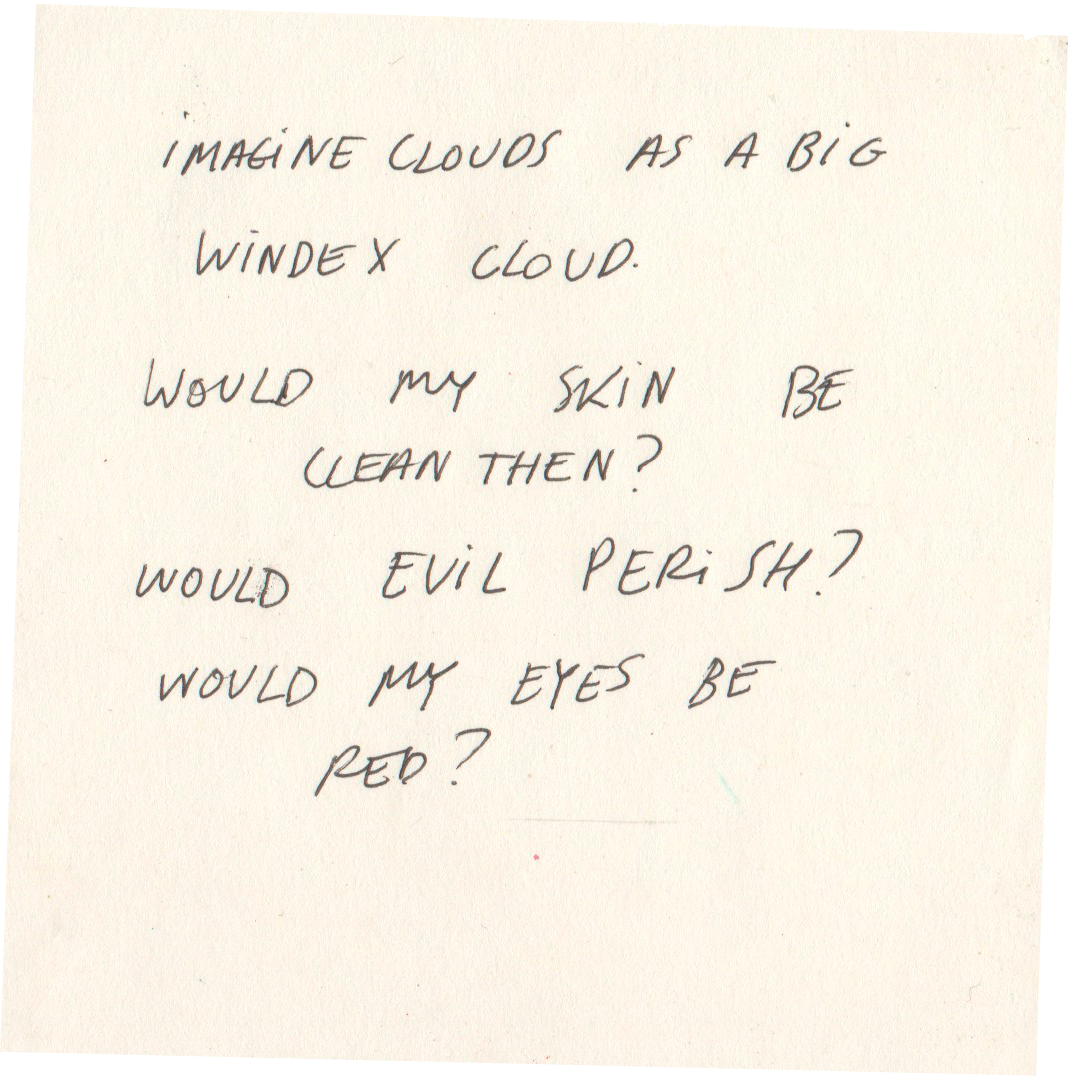 iMAGiNE CLOUDS AS A BiG
WiNDEX CLOUD.
WOULD MY SKiN BE
CLEAN THEN?
WOULD EViL PERiSH?
WOULD MY EYES BE
RED?